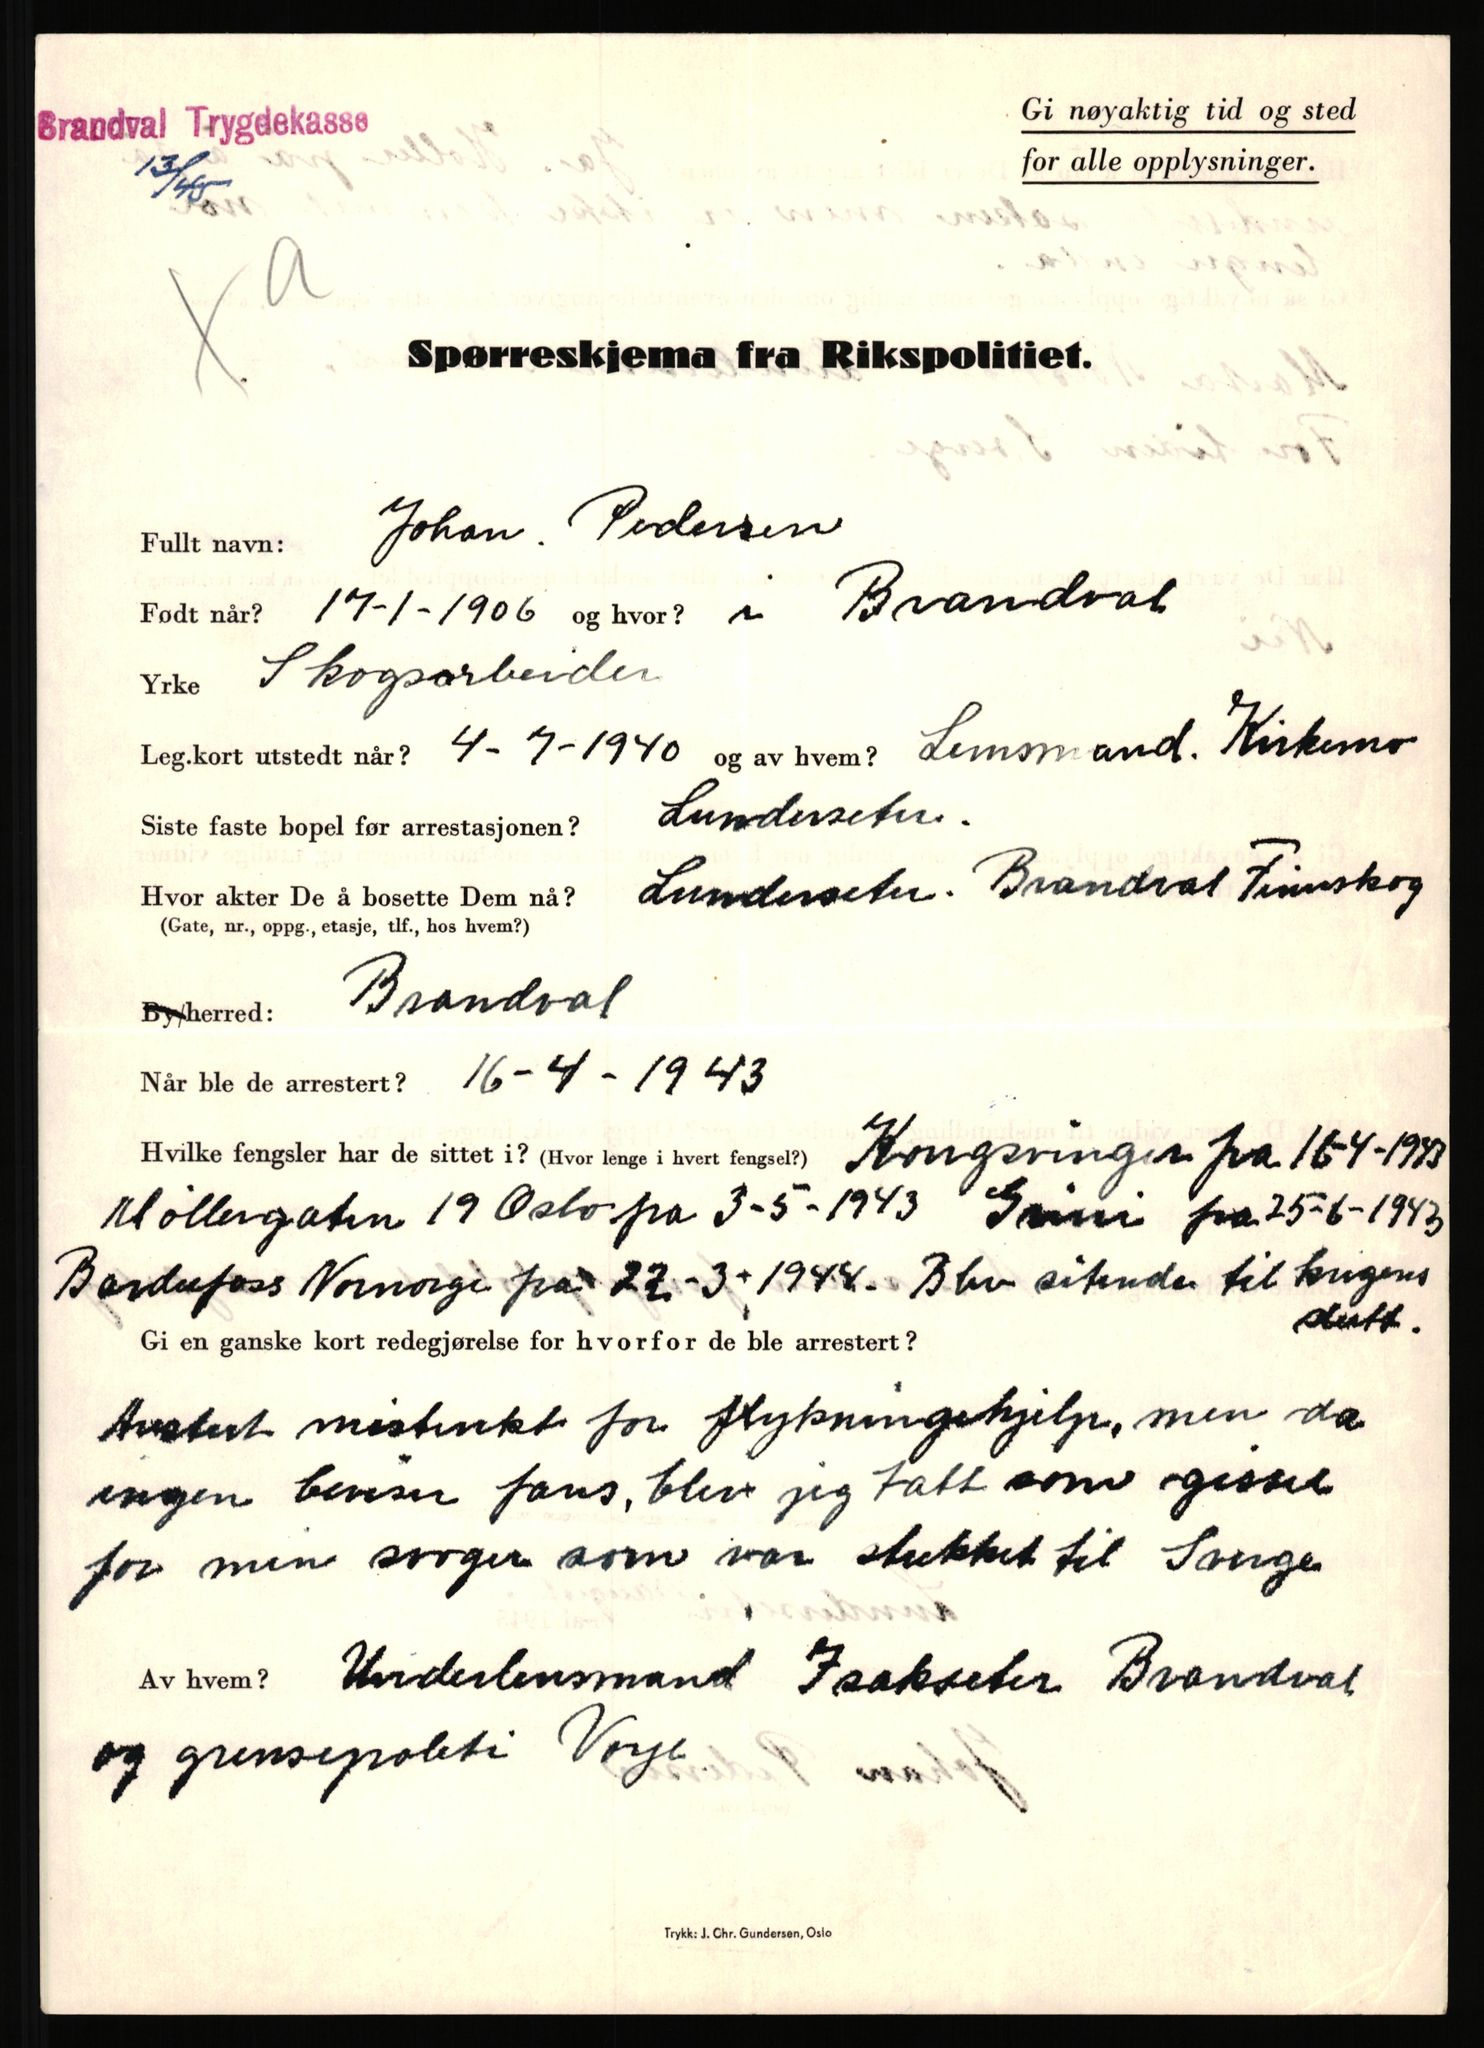 Brandval Trygdekasse
13/45
Gi nøyaktig tid og sted
for alle opplysninger.
X a
Spørreskjema fra Rikspolitiet.
Fullt navn: Johan. Pedersen
Født når? 17-1-1906 og hvor? i Brandval
Yrke Skogsarbeider
Leg.kort utstedt når? 4-7-1940 og av hvem? Lensmand. Kirkemo
Siste faste bopel før arrestasjonen? Lunderseter.
Hvor akter De å bosette Dem nå? Lunderseter. Brandval Finnskog
(Gate, nr., oppg., etasje, tlf., hos hvem?)
By/herred: Brandval
Når ble de arrestert? 16-4-1943
Hvilke fengsler har de sittet i? (Hvor lenge i hvert fengsel?) Kongsvinger fra 16-4-1943
Møllergaten 19 Oslo fra 3-5-1943 Grini fra 25-6-1943
Bardufoss Nornorge fra 22-3-1944. Blev sitende til krigens
slutt.
Gi en ganske kort redegjørelse for hvorfor de ble arrestert?
mistenkt for flyktningehjelp, men da
ingen beviser fans, blev jeg tatt som gissel
for min svoger som var stukket til Sverge
Av hvem? Underlensmand Isakseter Brandval
og grensepoleti
Trykk: J. Chr. Gundersen, Oslo